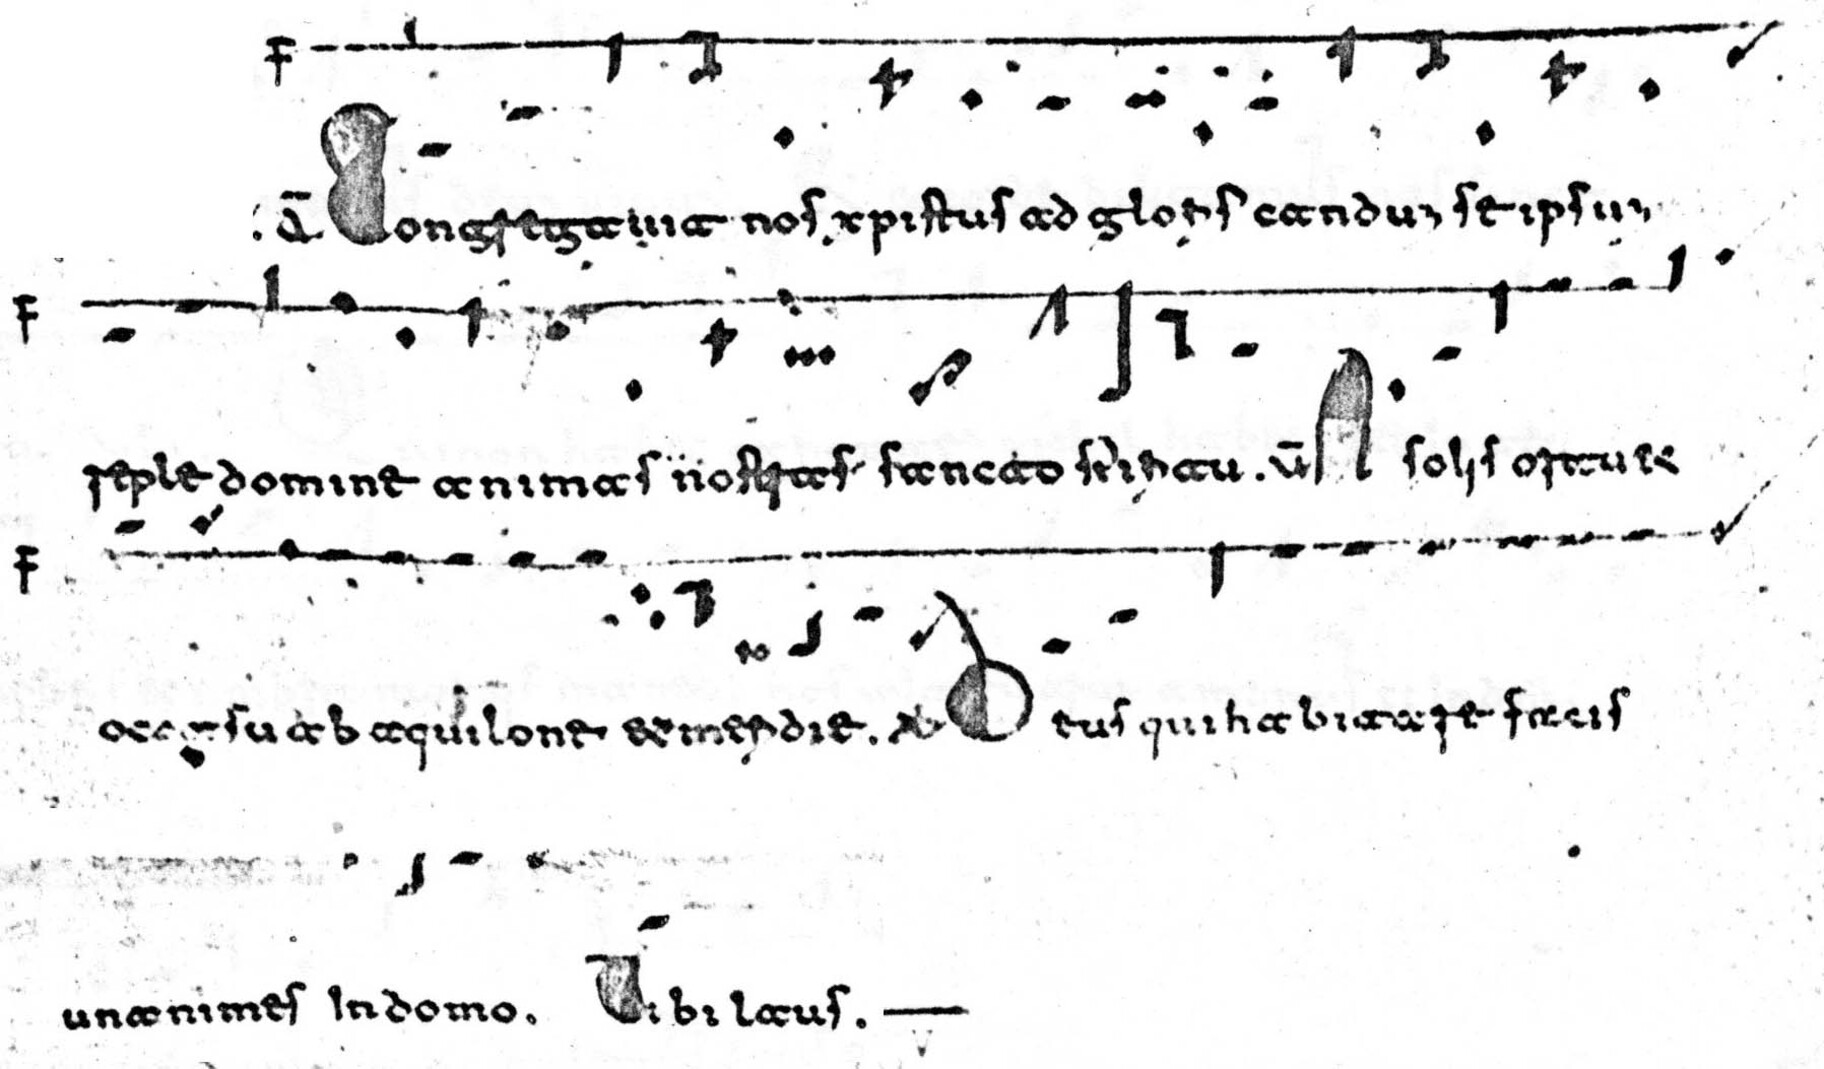 A Congregauit nos xpistus ad glorificanduʒ se ipsuʒ
reple domine animas nostras sancto spiritu. V A solis ortu et
occasu ab aquilone et meridie. Deus qui habitare facis
unanimes In domo. Tibi laus.